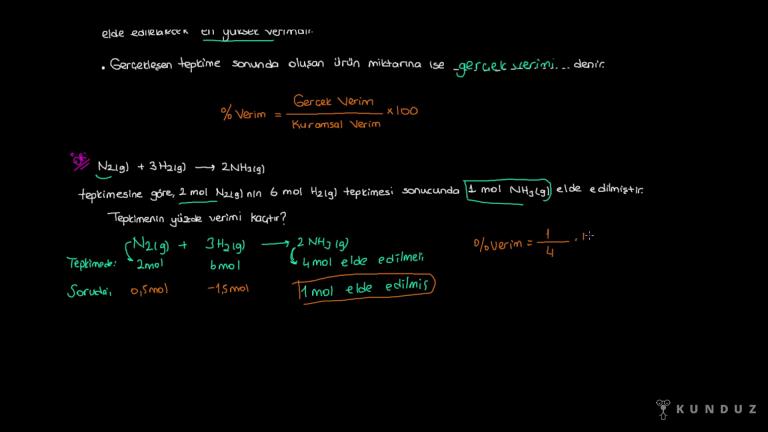 elde edilebilecek en yüksek verimdir.
• Gerçekleşen tepkime sonunda oluşan ürün miktarına ise gerçek verimi... denir.
% Verim = Gerçek Verim / Kuramsal Verim × 100
N₂(g) + 3H₂(g) → 2NH₃(g)
tepkimesine göre, 2 mol N₂(g)'nın 6 mol H₂(g) tepkimesi sonucunda 1 mol NH₃(g) elde edilmiştir.
Tepkimenin yüzde verimi kaçtır?
N₂(g) + 3H₂(g) → 2 NH₃(g)
%Verim = 1/4 .
Tepkimede: 2mol 6mol 4mol elde edilmeli
Soruda: 0,5mol -1,5mol 1 mol elde edilmiş
KUNDUZ